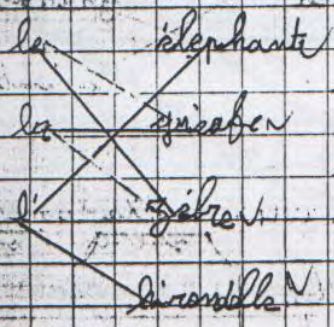 le éléphant
la girafe
l' zèbre
hirondelle